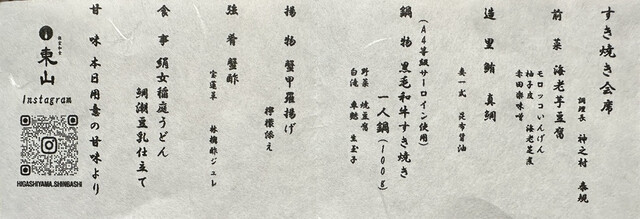 すき焼き会席
調理長 神之村 泰規
前菜 海老芋豆腐
モロッコいんげん
柚子皮 海老芝煮
赤田楽味噌
造里 鮪 真鯛
妻一式 昆布醤油
(A4等級サーロイン使用)
鍋物 黒毛和牛すき焼き
一人鍋(100g)
野菜 焼豆腐
白滝 車麩 生玉子
揚物 蟹甲羅揚げ
檸檬添え
強肴 蟹酢
宝蓮草 林檎酢ジュレ
食事 絹女稲庭うどん
鯛潮豆乳仕立て
甘味 本日用意の甘味より
東山
Instagram
HIGASHIYAMA.SHINBASHI